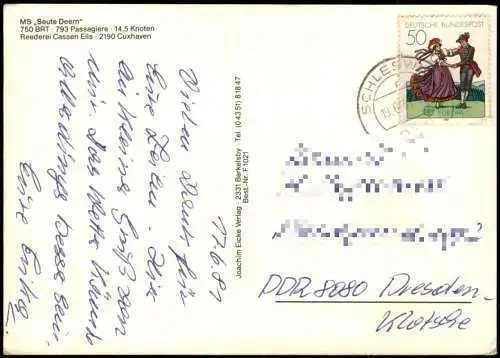 MS „Seute Deern"
750 BRT · 793 Passagiere · 14,5 Knoten
Reederei Cassen Eils · 2190 Cuxhaven
DEUTSCHE BUNDESPOST
50
EUROPA
SCHLESW
17.6.81
Vielen Dank für
Eure Zeilen. Hier
ein kleiner Gruß von
mir. Das Wetter könnte
allerdings besser sein.
Eure
Joachim Eicke Verlag · 2331 Barkelsby · Tel. (0 43 51) 8 18 47
Best.-Nr. F 1021
DDR 8080 Dresden-
Klotzsche